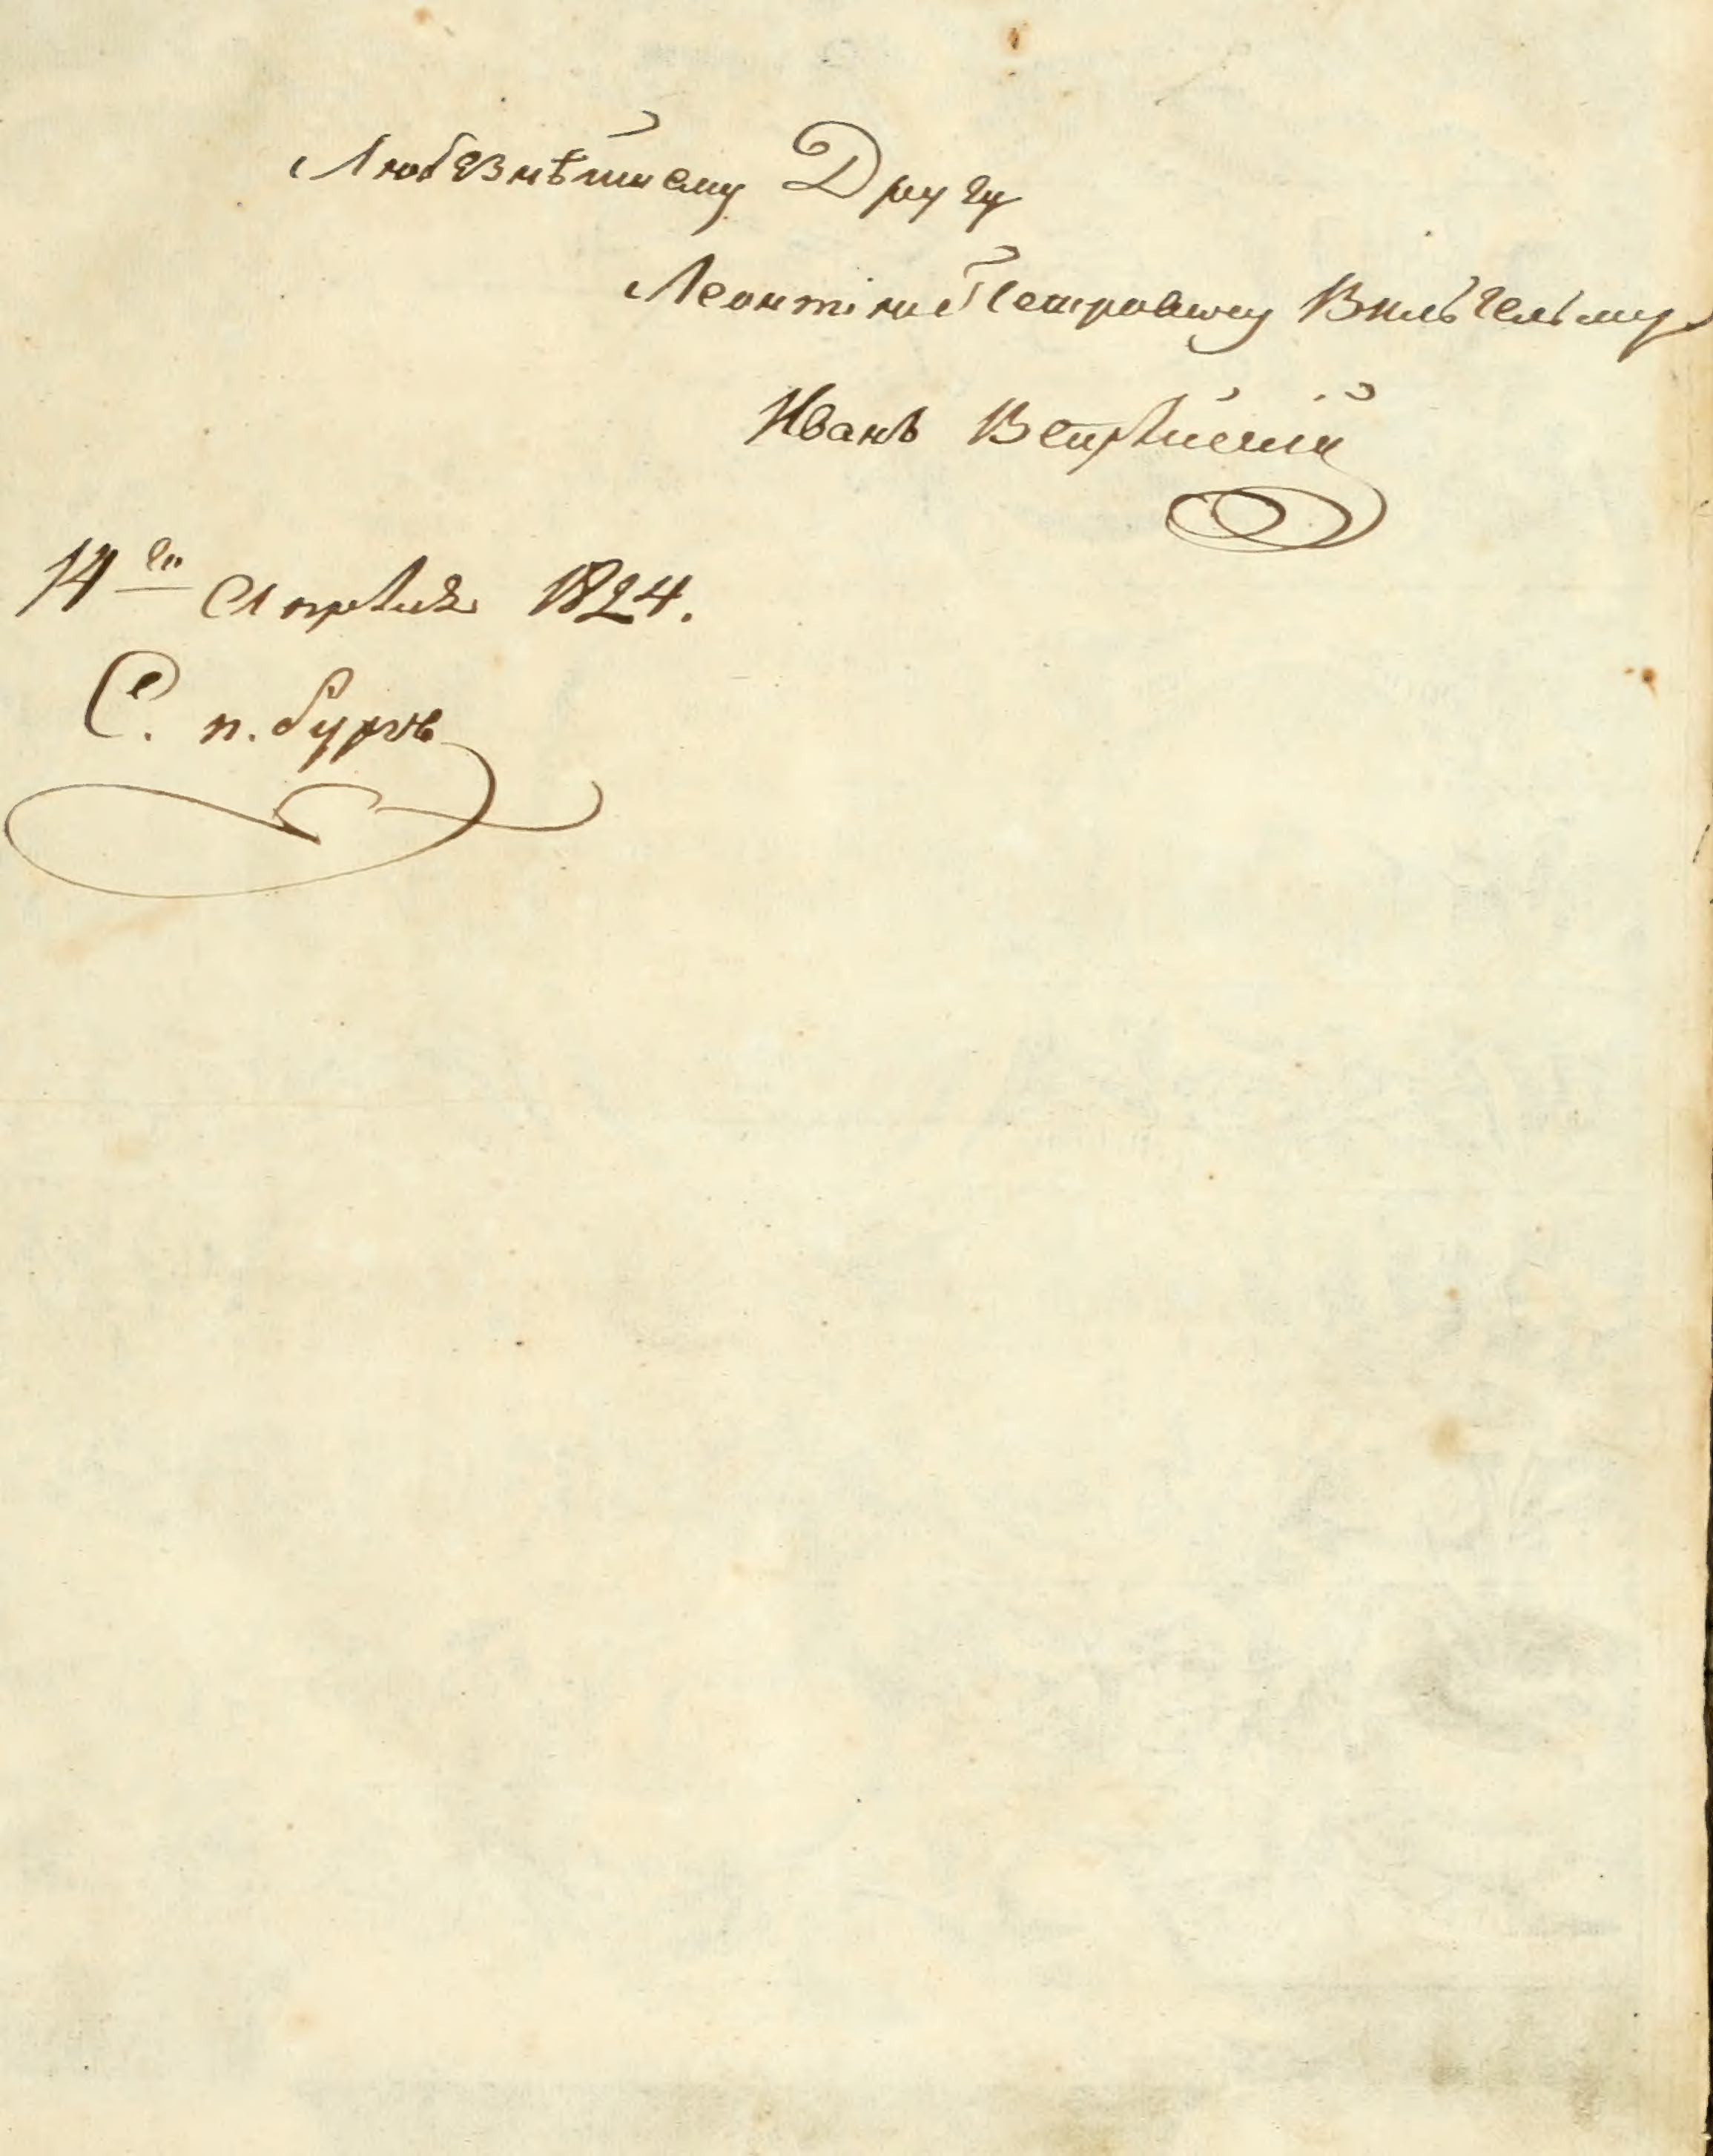 Любезнѣйшему Другу
Леонтію Петровичу Вильгельму
Иванъ
14го Апрѣля 1824.
С. п. бургъ